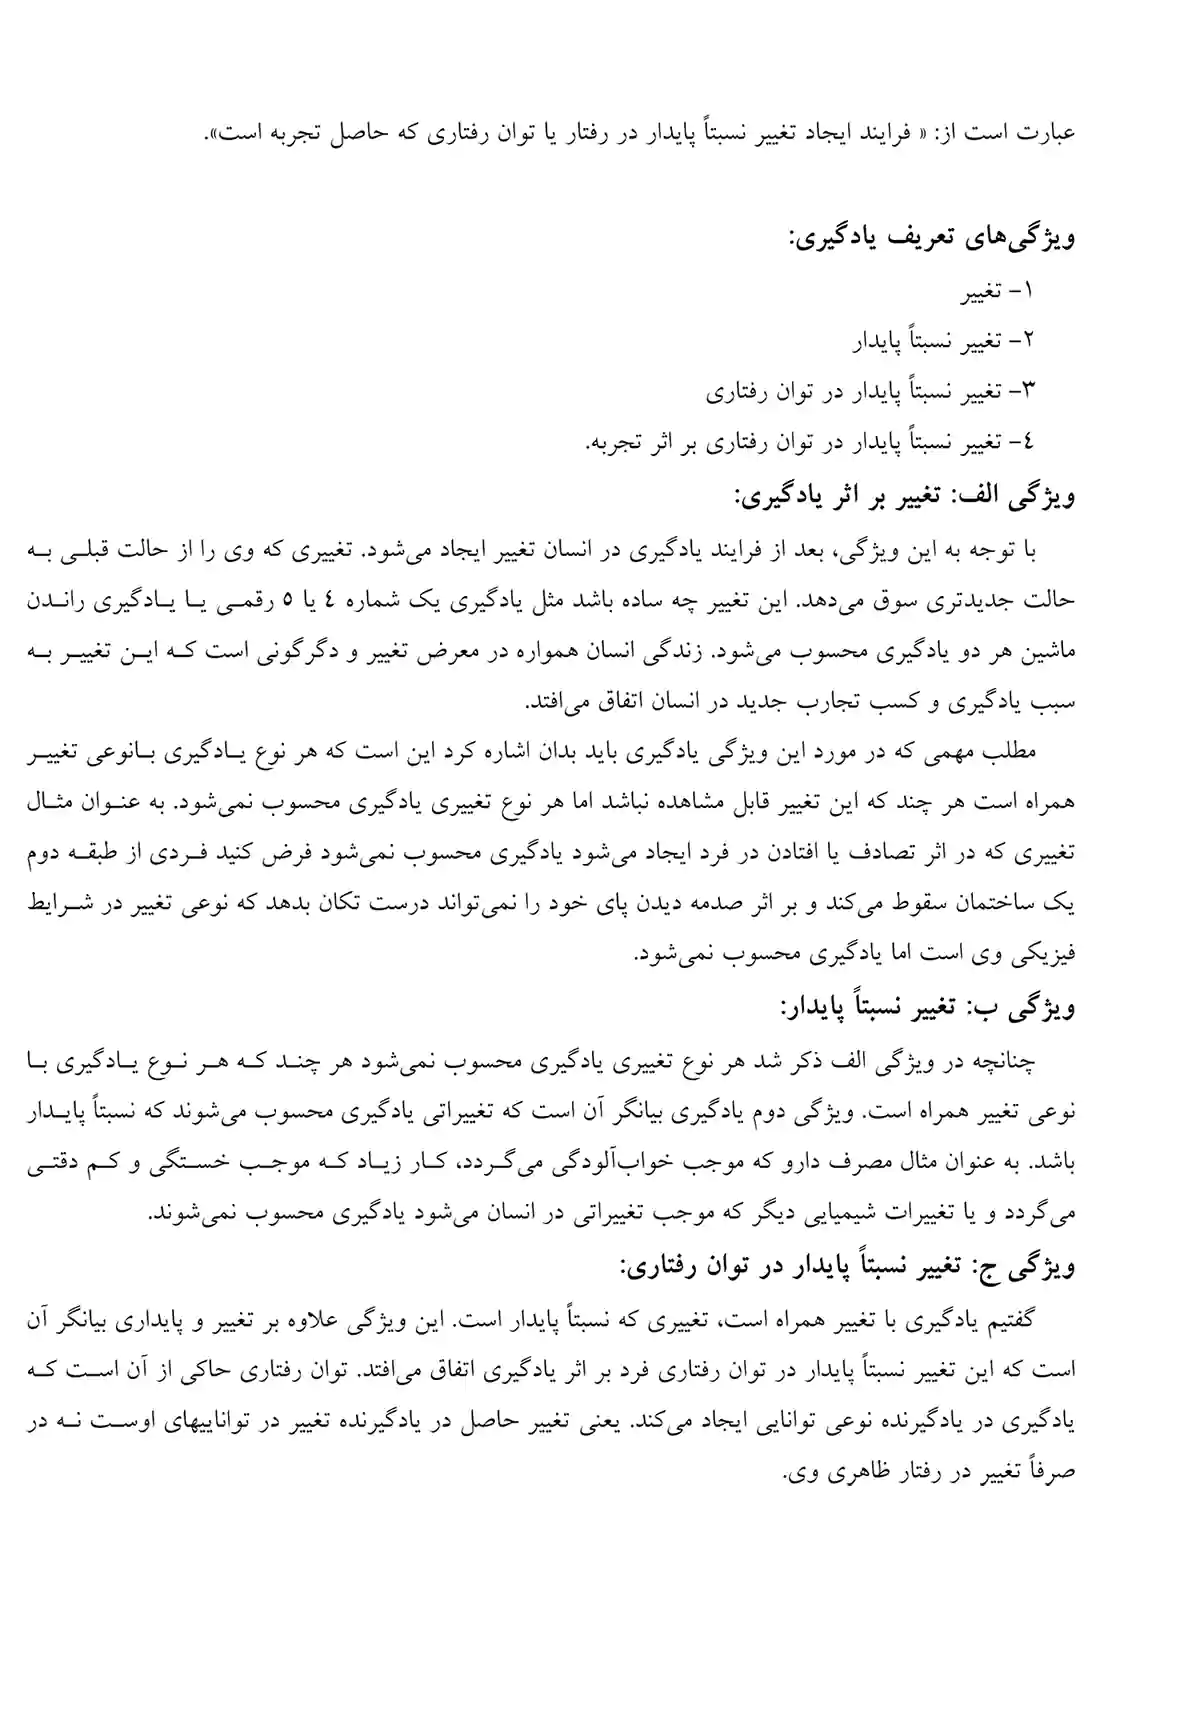 عبارت است از: « فرایند ایجاد تغییر نسبتاً پایدار در رفتار یا توان رفتاری که حاصل تجربه است».
ویژگی‌های تعریف یادگیری:
۱- تغییر
۲- تغییر نسبتاً پایدار
۳- تغییر نسبتاً پایدار در توان رفتاری
۴- تغییر نسبتاً پایدار در توان رفتاری بر اثر تجربه.
ویژگی الف: تغییر بر اثر یادگیری:
با توجه به این ویژگی، بعد از فرایند یادگیری در انسان تغییر ایجاد می‌شود. تغییری که وی را از حالت قبلی به
حالت جدیدتری سوق می‌دهد. این تغییر چه ساده باشد مثل یادگیری یک شماره ۴ یا ۵ رقمی یا یادگیری راندن
ماشین هر دو یادگیری محسوب می‌شود. زندگی انسان همواره در معرض تغییر و دگرگونی است که این تغییر به
سبب یادگیری و کسب تجارب جدید در انسان اتفاق می‌افتد.
مطلب مهمی که در مورد این ویژگی یادگیری باید بدان اشاره کرد این است که هر نوع یادگیری بانوعی تغییر
همراه است هر چند که این تغییر قابل مشاهده نباشد اما هر نوع تغییری یادگیری محسوب نمی‌شود. به عنوان مثال
تغییری که در اثر تصادف یا افتادن در فرد ایجاد می‌شود یادگیری محسوب نمی‌شود فرض کنید فردی از طبقه دوم
یک ساختمان سقوط می‌کند و بر اثر صدمه دیدن پای خود را نمی‌تواند درست تکان بدهد که نوعی تغییر در شرایط
فیزیکی وی است اما یادگیری محسوب نمی‌شود.
ویژگی ب: تغییر نسبتاً پایدار:
چنانچه در ویژگی الف ذکر شد هر نوع تغییری یادگیری محسوب نمی‌شود هر چند که هر نوع یادگیری با
نوعی تغییر همراه است. ویژگی دوم یادگیری بیانگر آن است که تغییراتی یادگیری محسوب می‌شوند که نسبتاً پایدار
باشد. به عنوان مثال مصرف دارو که موجب خواب‌آلودگی می‌گردد، کار زیاد که موجب خستگی و کم دقتی
می‌گردد و یا تغییرات شیمیایی دیگر که موجب تغییراتی در انسان می‌شود یادگیری محسوب نمی‌شوند.
ویژگی ج: تغییر نسبتاً پایدار در توان رفتاری:
گفتیم یادگیری با تغییر همراه است، تغییری که نسبتاً پایدار است. این ویژگی علاوه بر تغییر و پایداری بیانگر آن
است که این تغییر نسبتاً پایدار در توان رفتاری فرد بر اثر یادگیری اتفاق می‌افتد. توان رفتاری حاکی از آن است که
یادگیری در یادگیرنده نوعی توانایی ایجاد می‌کند. یعنی تغییر حاصل در یادگیرنده تغییر در تواناییهای اوست نه در
صرفاً تغییر در رفتار ظاهری وی.